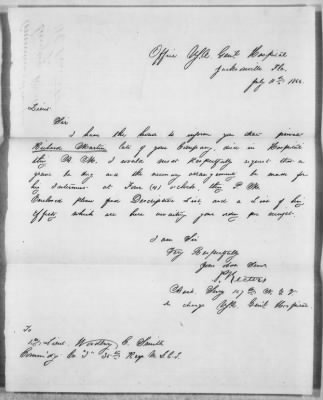 Office Genl Hospital
Jacksonville Fla.
July 11th 186
Lieut
Sir
I have the honor to inform you that private
Richard Martin late of your Company, died in Hospital
this A.M. I would most Respectfully request that a
grave be dug and the necessary arrangements be made for
his interment at Four (4) o'clock, this P.M.
Enclosed please find Descriptive List, and a List of his
Effects which are here awaiting your
I am Sir
Very Respectfully
Your Obt Servt
Surg
in charge Genl Hospital
To
Lieut C. Smith
Comm'dg Co 35th Regt U.S.C.T.